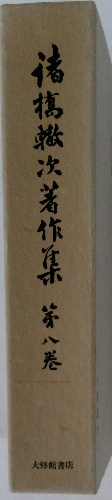 諸橋轍次著作集 第八巻
大修館書店